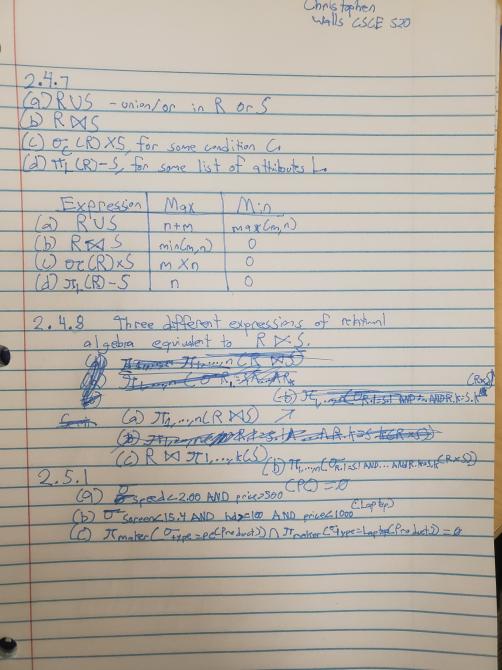 Christophen
Walls CSCE 520
2.4.7
(a) R ∪ S - union/or in R or S
(b) R ⋈ S
(c) σc (R) × S, for some condition C.
(d) πL (R) - S, for some list of attributes L.
Expression Max Min
(a) R ∪ S n+m max(m,n)
(b) R ⋈ S min(m,n) 0
(c) σc(R)×S m×n 0
(d) πL(R)-S n 0
2.4.8 Three different expressions of relational
algebra equivalent to R ⋉ S.
(a) π1,...,n(R ⋈ S)
(c) R ⋈ π1,...,k(S) (b) π1,...,n(σR.1=S.1 AND... AND R.k=S.k(R×S))
2.5.1
(a) σ speed<2.00 AND price>500 (PC) = ∅
(b) σ screen<15.4 AND hd>=100 AND price<1000 (Laptop)
(c) πmaker(σtype=pc(Product)) ∩ πmaker(σtype=Laptop(Product)) = ∅